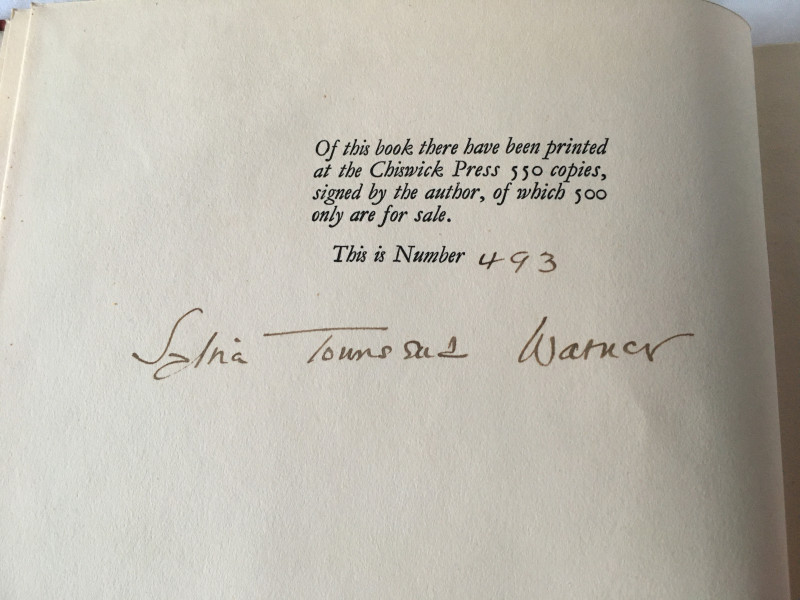 Of this book there have been printed
at the Chiswick Press 550 copies,
signed by the author, of which 500
only are for sale.
This is Number 493
Sylvia Townsend Warner